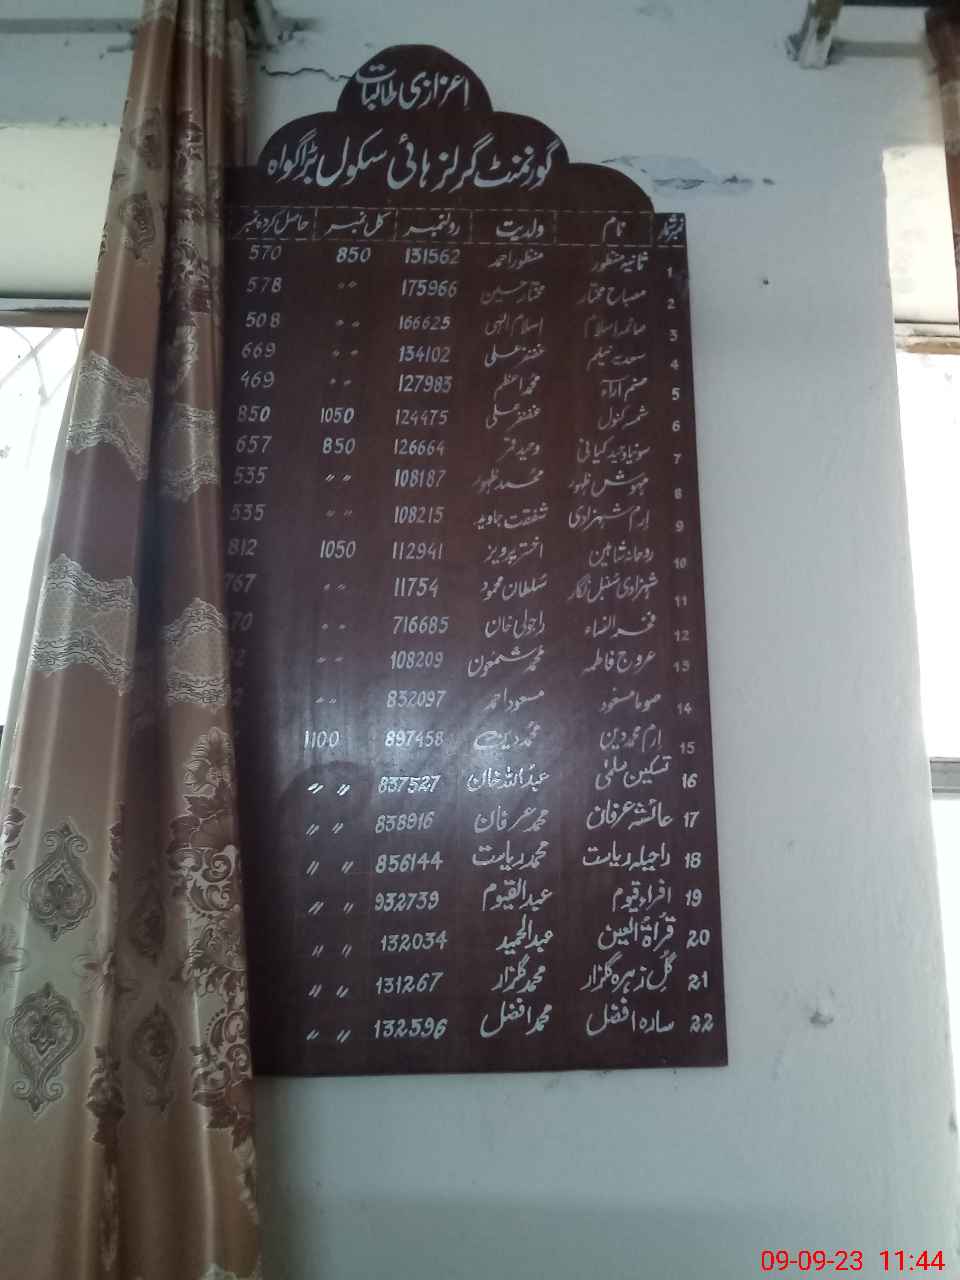 اعزازی طالبات
گورنمنٹ گرلز ہائی سکول بڑاگواہ
نمبر شمار نام ولدیت رولنمبر کل نمبر حاصل کردہ نمبر
1 ثانیہ منظور منظور احمد 131562 850 570
2 مصباح مختار مختار حسین 175966 〃 578
3 صائمہ اسلام اسلام الہی 166625 〃 508
4 سعدیہ نیلم غضنفر علی 134102 〃 669
5 صنم آراء محمد اعظم 127983 〃 469
6 ثمر کنول غضنفر علی 124475 1050 850
7 سونیا وحید کیانی وحید قمر 126664 850 657
8 مہوش ظہور محمد ظہور 108187 〃 535
9 ارم شہزادی شفقت جاوید 108215 〃 535
10 روحانہ شاہین اختر پرویز 112941 1050 812
11 شہزادی سنبل نگار سلطان محمود 11754 〃 767
12 فخر النساء راجولی خان 716685 〃 70
13 عروج فاطمہ محمد شمعون 108209 〃 2
14 صوما مسعود مسعود احمد 832097 〃 2
15 ارم محمد دین محمد دین 897458 1100
16 تسکین سلمٰی عبداللہ خان 837527 〃 〃
17 عائشہ عرفان محمد عرفان 838916 〃 〃
18 راحیلہ ریاست محمد ریاست 856144 〃 〃
19 اقراء قیوم عبدالقیوم 932739 〃 〃
20 قراۃ العین عبدالحمید 132034 〃 〃
21 گل زہرہ گلزار محمد گلزار 131267 〃 〃
22 سارہ افضل محمد افضل 132596 〃 〃
09-09-23 11:44